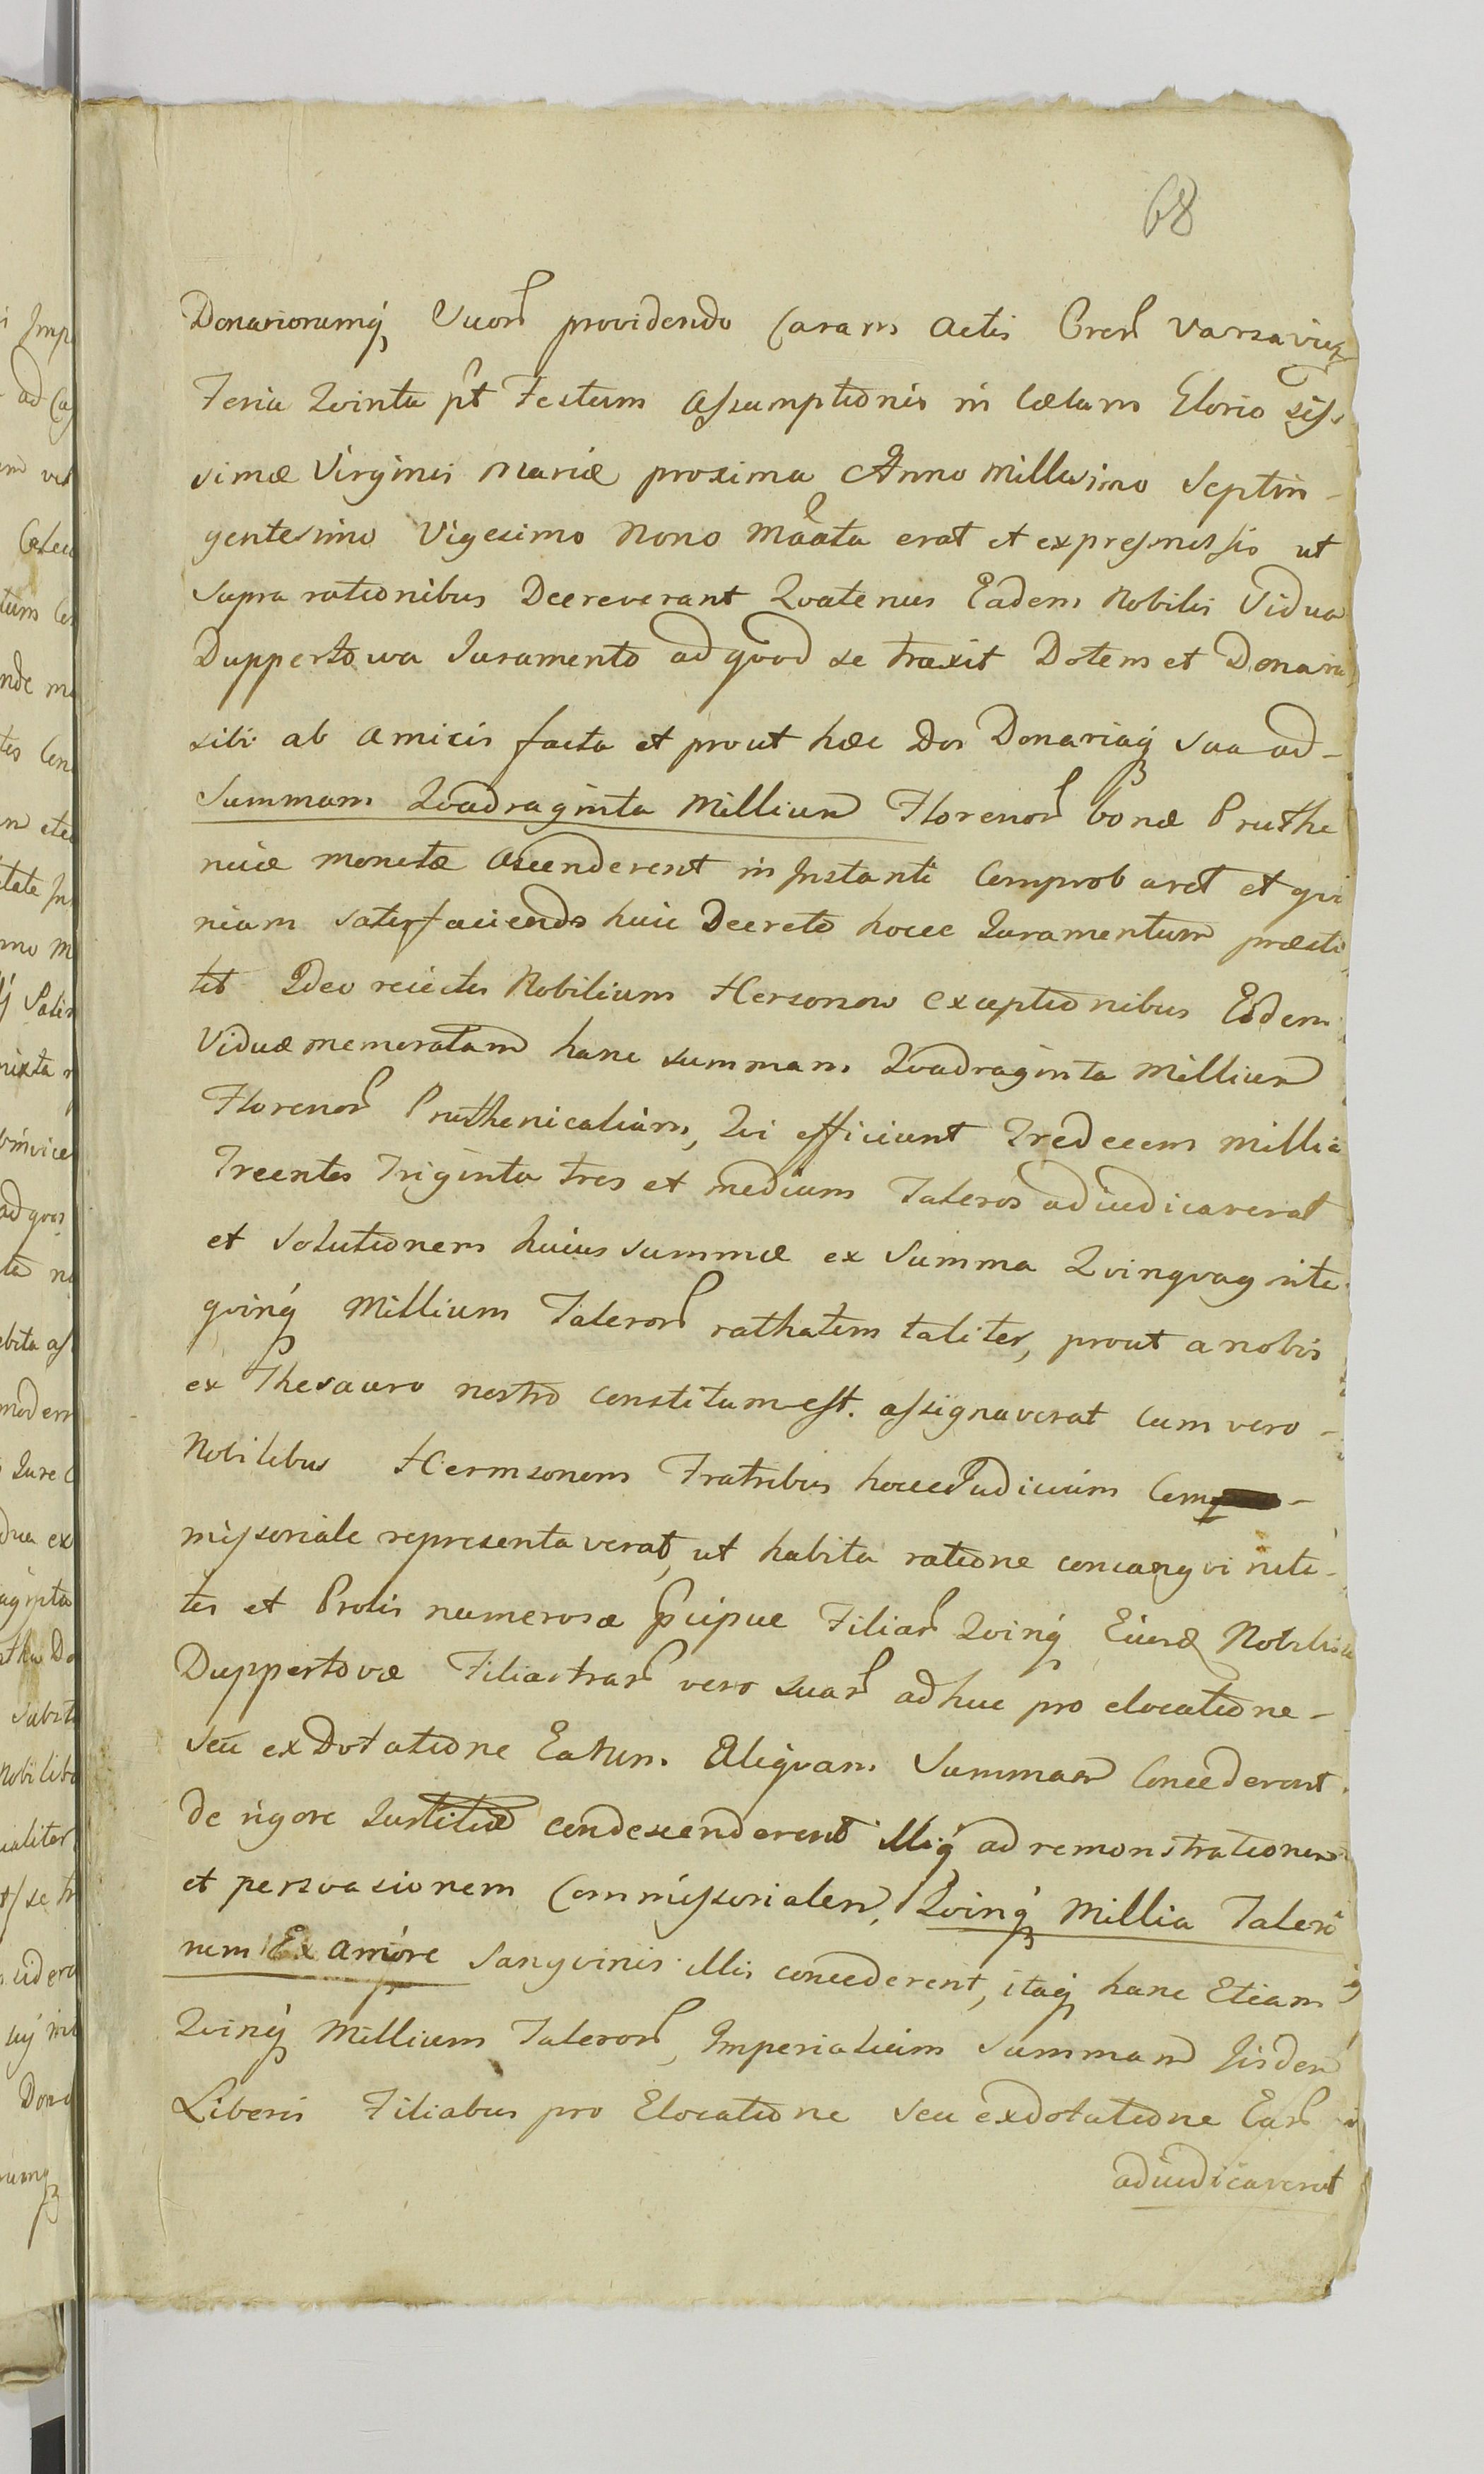 68
Donariorumq́ Suor̃ providendo Coram Actis Cren̄ Varsavieñ
Feria Qvinta p̃t Festum Assumptionis in Cœlum Glorio sis-
simæ Virginis Mariæ proxima Anno Millesimo Septin-
gentesimo Vigesimo Nono Māāta erat et ex præmissis ut
supra rationibus Decreverant Qvatenus Eadem Nobilis Vidua
Duppertowa Juramento ad qvod se traxit Dotem et Donaria
sibi ab amicis facta et prout hæc Dos Donariaq́ sua ad-
Summam Qvadraginta Millium Florenor̃ bonæ Pruthe
nicæ monetæ ascenderent in Instanti Comprobaret et qvo
niam satisfaciendo huic Decreto hocce Juramentum præsti
tit Ideo reiectis Nobilium Hersonow exceptionibus Eidem
Viduæ memoratam hanc summam Qvadraginta Millium
Florenor̃ Pruthenicalium, Qvi efficiunt Tredecem Millia
Trecentos Triginta tres et medium Taleros adiudicaverat
et solutionem huius summæ ex Summa Qvinqvaginta
qvinq́ Millium Taleror̃ rathatim taliter, prout a nobis
ex Thesauro nostro constitutum est. assignaverat Cum vero -
Nobilibus Hermsonom Fratribus hocce Judicium Com -
missoriale representaverat, ut habita ratione consangvinita-
tis et Prolis numerosæ p̃cipue Filiar̃ Qvinq́ Eiusd Nobilis
Duppertovæ Filiastrar̃ vero suar̃ adhuc pro elocatione -
seu exDotatione Earum Aliqvam Summam Concederent
de rigore Justitiæ condescenderent illiq́ ad remonstrationem
et persvasionem Commissorialem, Qvinq́ Millia Talero
rum Ex amore sangvinis illis concederent, itaq́ hanc Etiam
Qvinq́ Millium Taleror̃, Imperialium summam Iisdem
Liberis Filiabus pro Elocatione seu exdotatione Ear̃
adiudicaverat